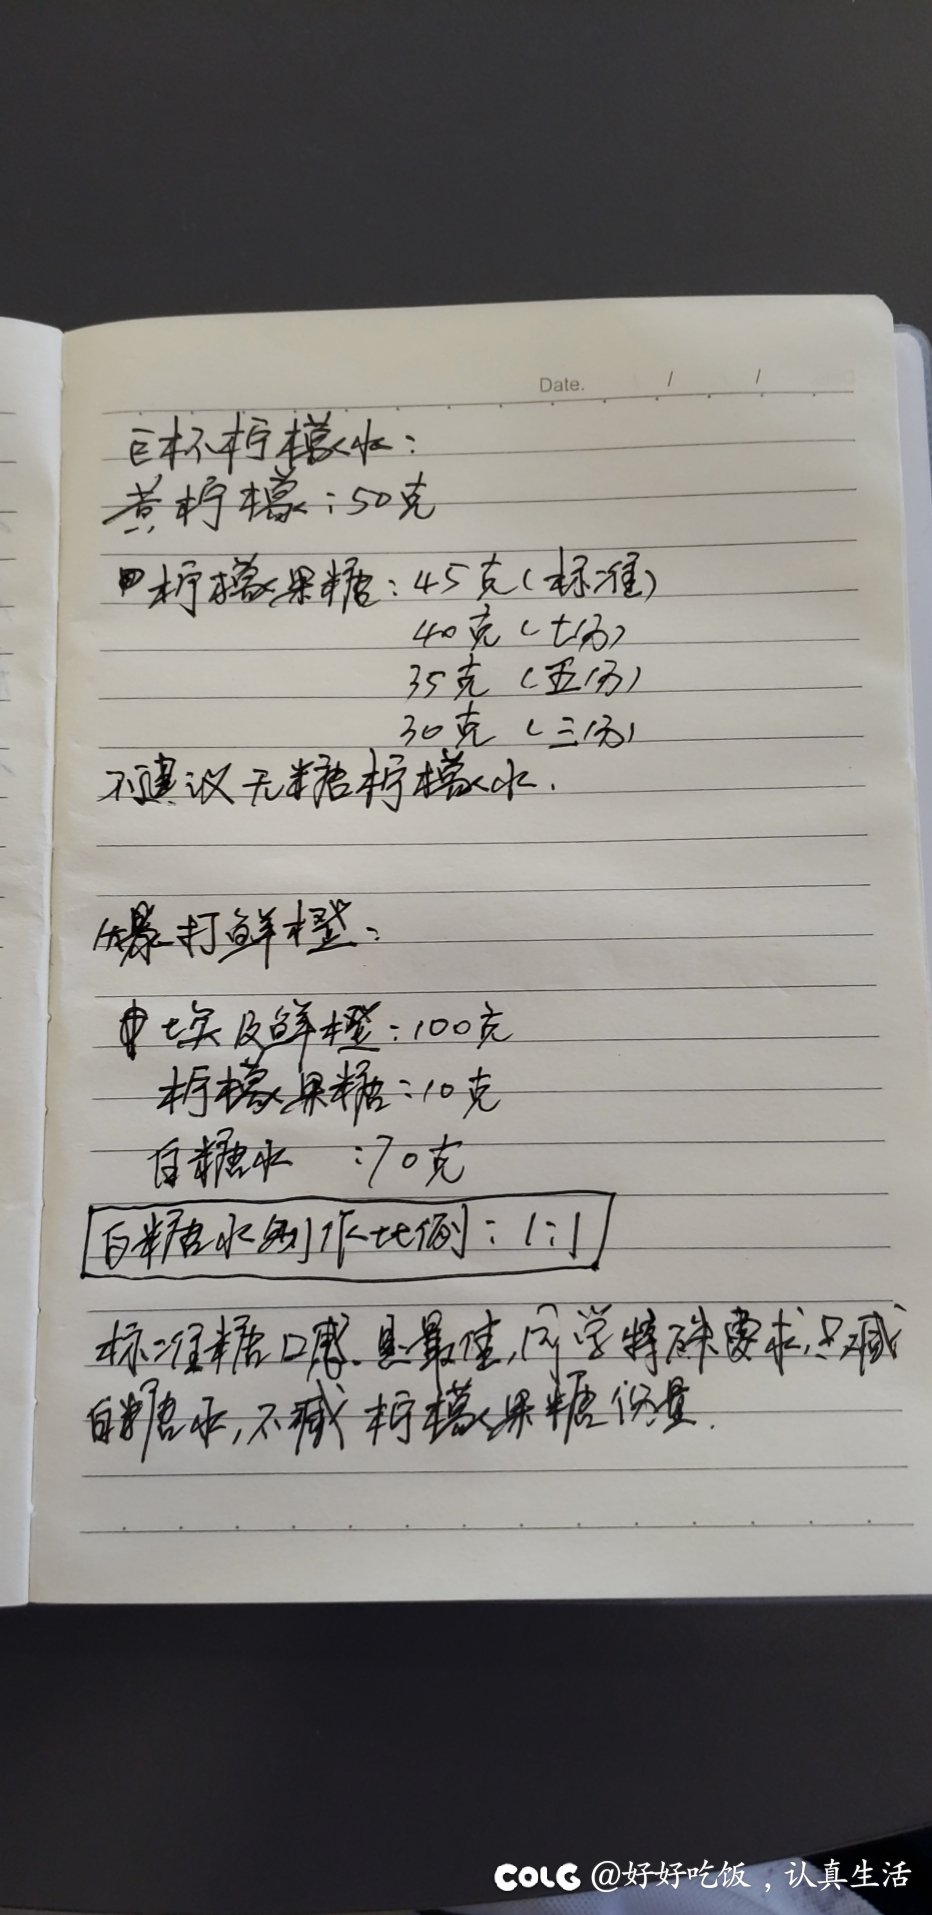 Date. / /
巨杯柠檬水:
黄柠檬:50克
柠檬果糖:45克(标准)
40克(七分)
35克(五分)
30克(三分)
不建议无糖柠檬水.
爆打鲜橙:
埃及鲜橙:100克
柠檬果糖:10克
白糖水 :70克
白糖水制作比例:1:1
标准糖口感是最佳,同学特殊要求,只减
白糖水,不减柠檬果糖份量.
COLG @好好吃饭，认真生活